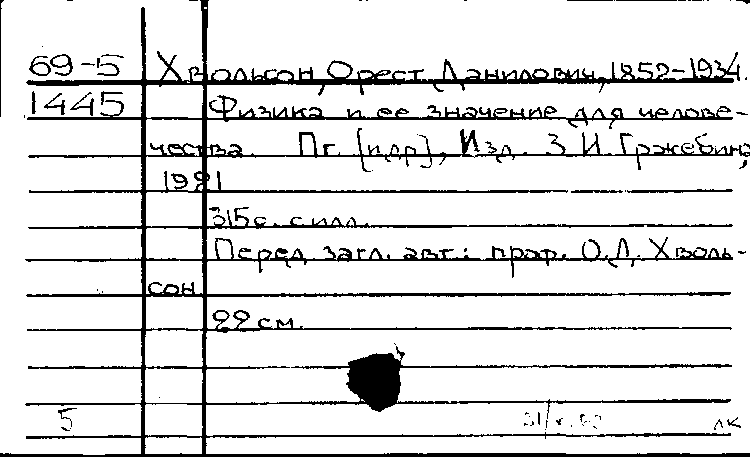 69-5 Хвольсон, Орест Данилович, 1852-1934.
1445 Физика и ее значение для челове-
чества. Пг. [и др], Изд. З.И. Гржебина,
1921
315 с. с илл.
Перед загл. авт.: проф. О.Д. Хволь-
сон
22 см.
5 ЛК